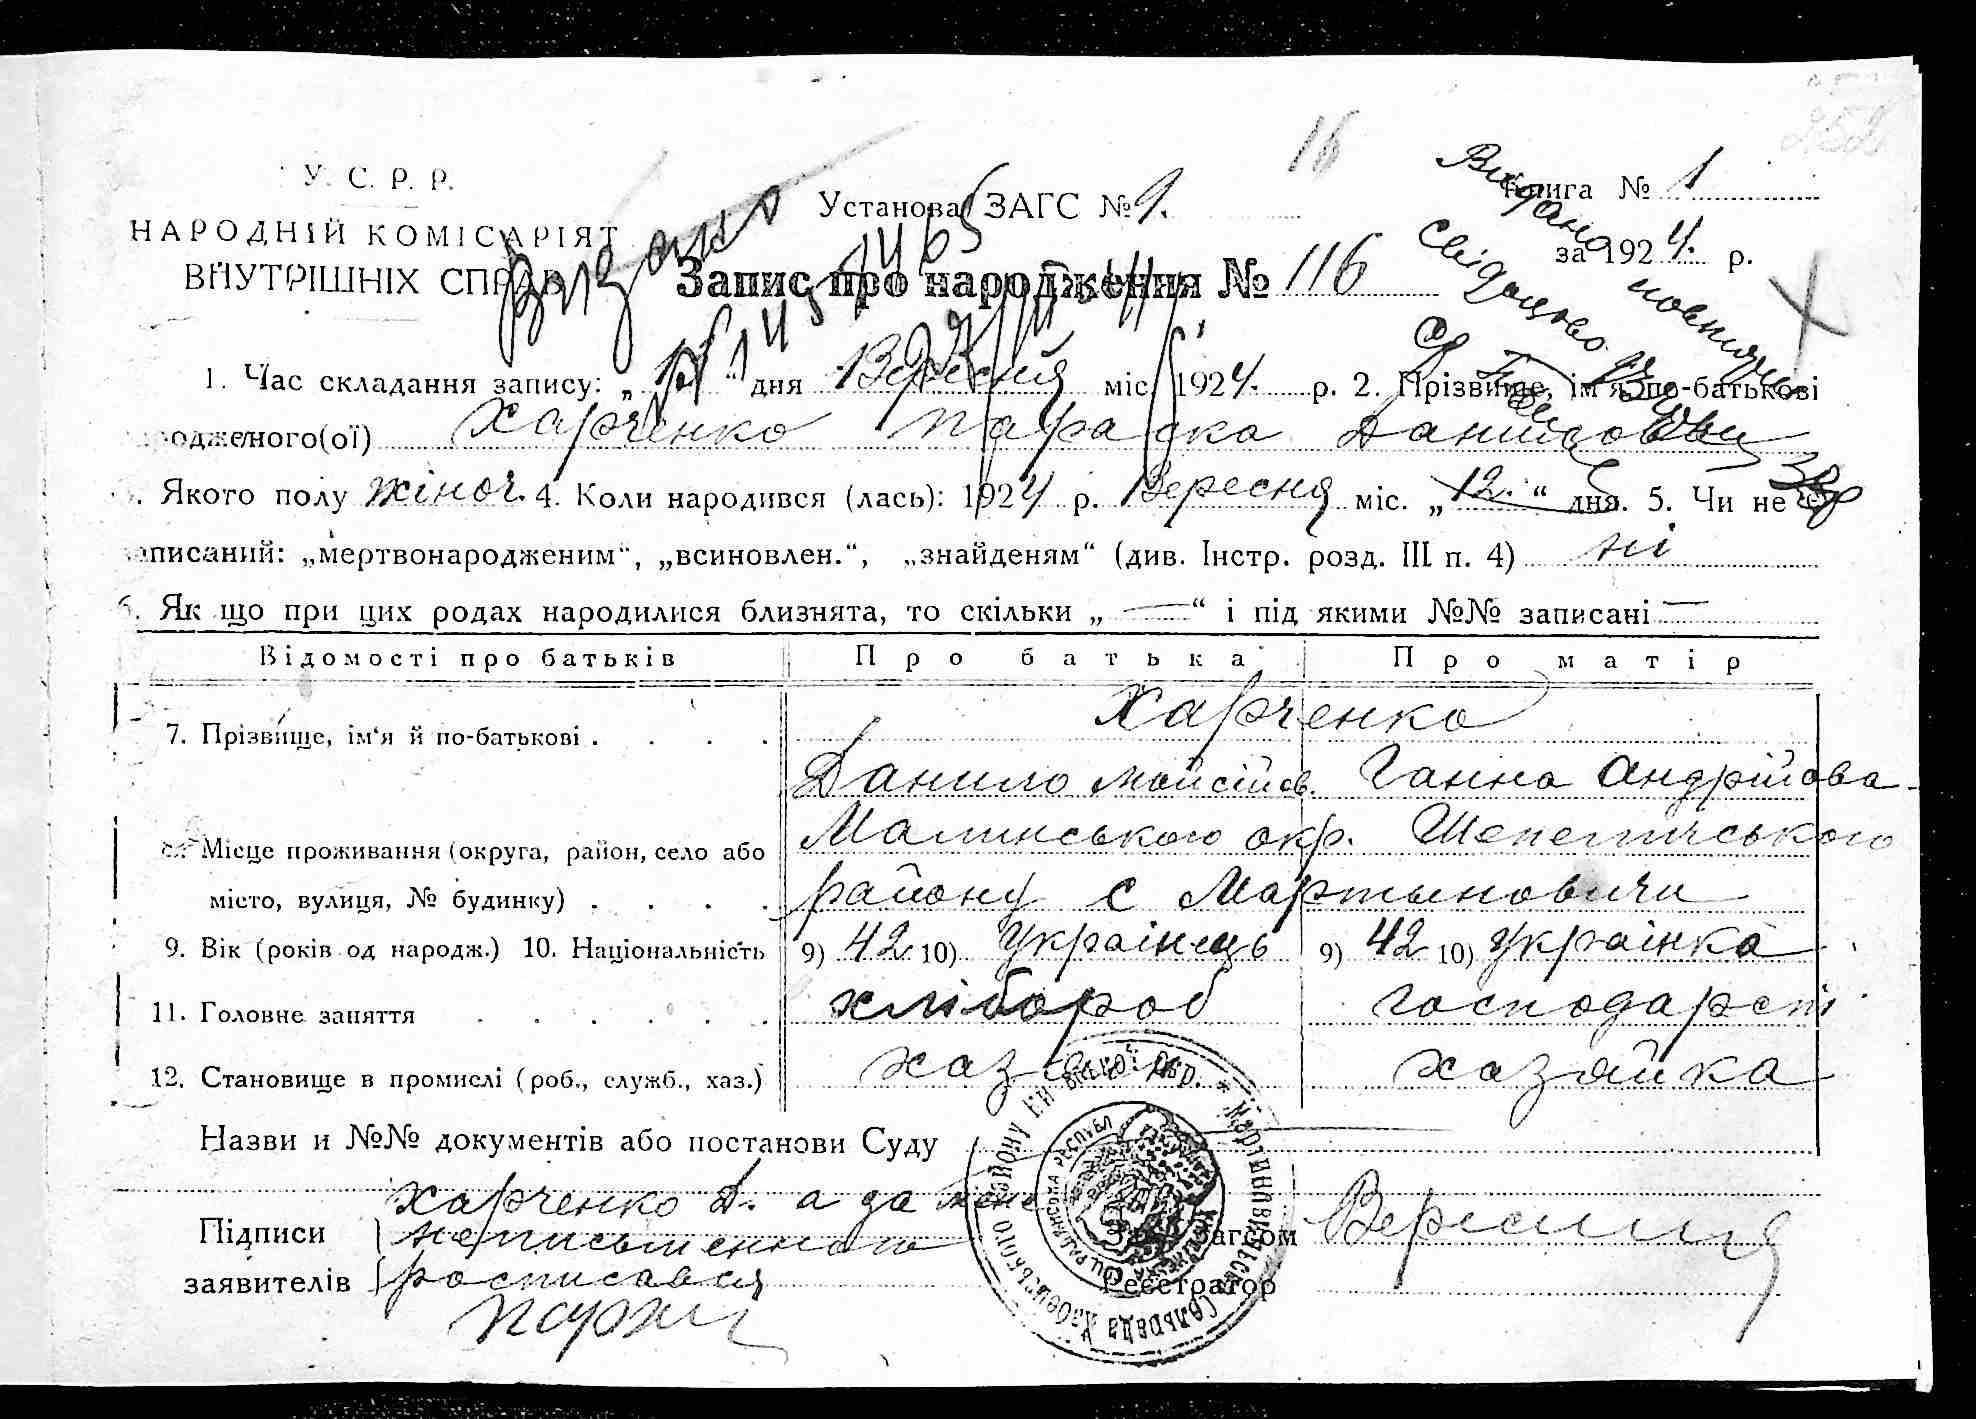 252
16
У. С. Р. Р.
НАРОДНІЙ КОМІСАРІЯТ
ВНУТРІШНІХ СПРАВ
Видано
Установа ЗАГС № 1.
Книга № 1
за 1924. р.
Видано повторне
свідоцтво
Запис про народження № 116
1. Час складання запису: „ “ дня Вересня міс. 1924. р. 2. Прізвище, ім‘я, по-батькові
родженого(ої) Харченко Параска Данилова
3. Якого полу жіноч. 4. Коли народився (лась): 1924 р. Вересня міс. „12.“ дня. 5. Чи не є
записаний: „мертвонародженим“, „всиновлен.“, „знайденям“ (див. Інстр. розд. III п. 4) ні
6. Як що при цих родах народилися близнята, то скільки „ — “ і під якими №№ записані —
Відомості про батьків Про батька Про матір
7. Прізвище, ім‘я й по-батькові . . . . Харченко
Данило Мойсійов. Ганна Андрійова
8. Місце проживання (округа, район, село або Малинського окр. Шепелицького
місто, вулиця, № будинку) . . . . району с Мартыновичи
9. Вік (років од народж.) 10. Національність 9) 42 10) Українець 9) 42 10) Українка
11. Головне заняття . . . . . . хлібороб господарст
12. Становище в промислі (роб., служб., хаз.) хазяїн хазяйка
Назви и №№ документів або постанови Суду
Харченко Д. а за мене
Підписи неписьменного Зав. Загсом
заявителів росписався Реєстратор